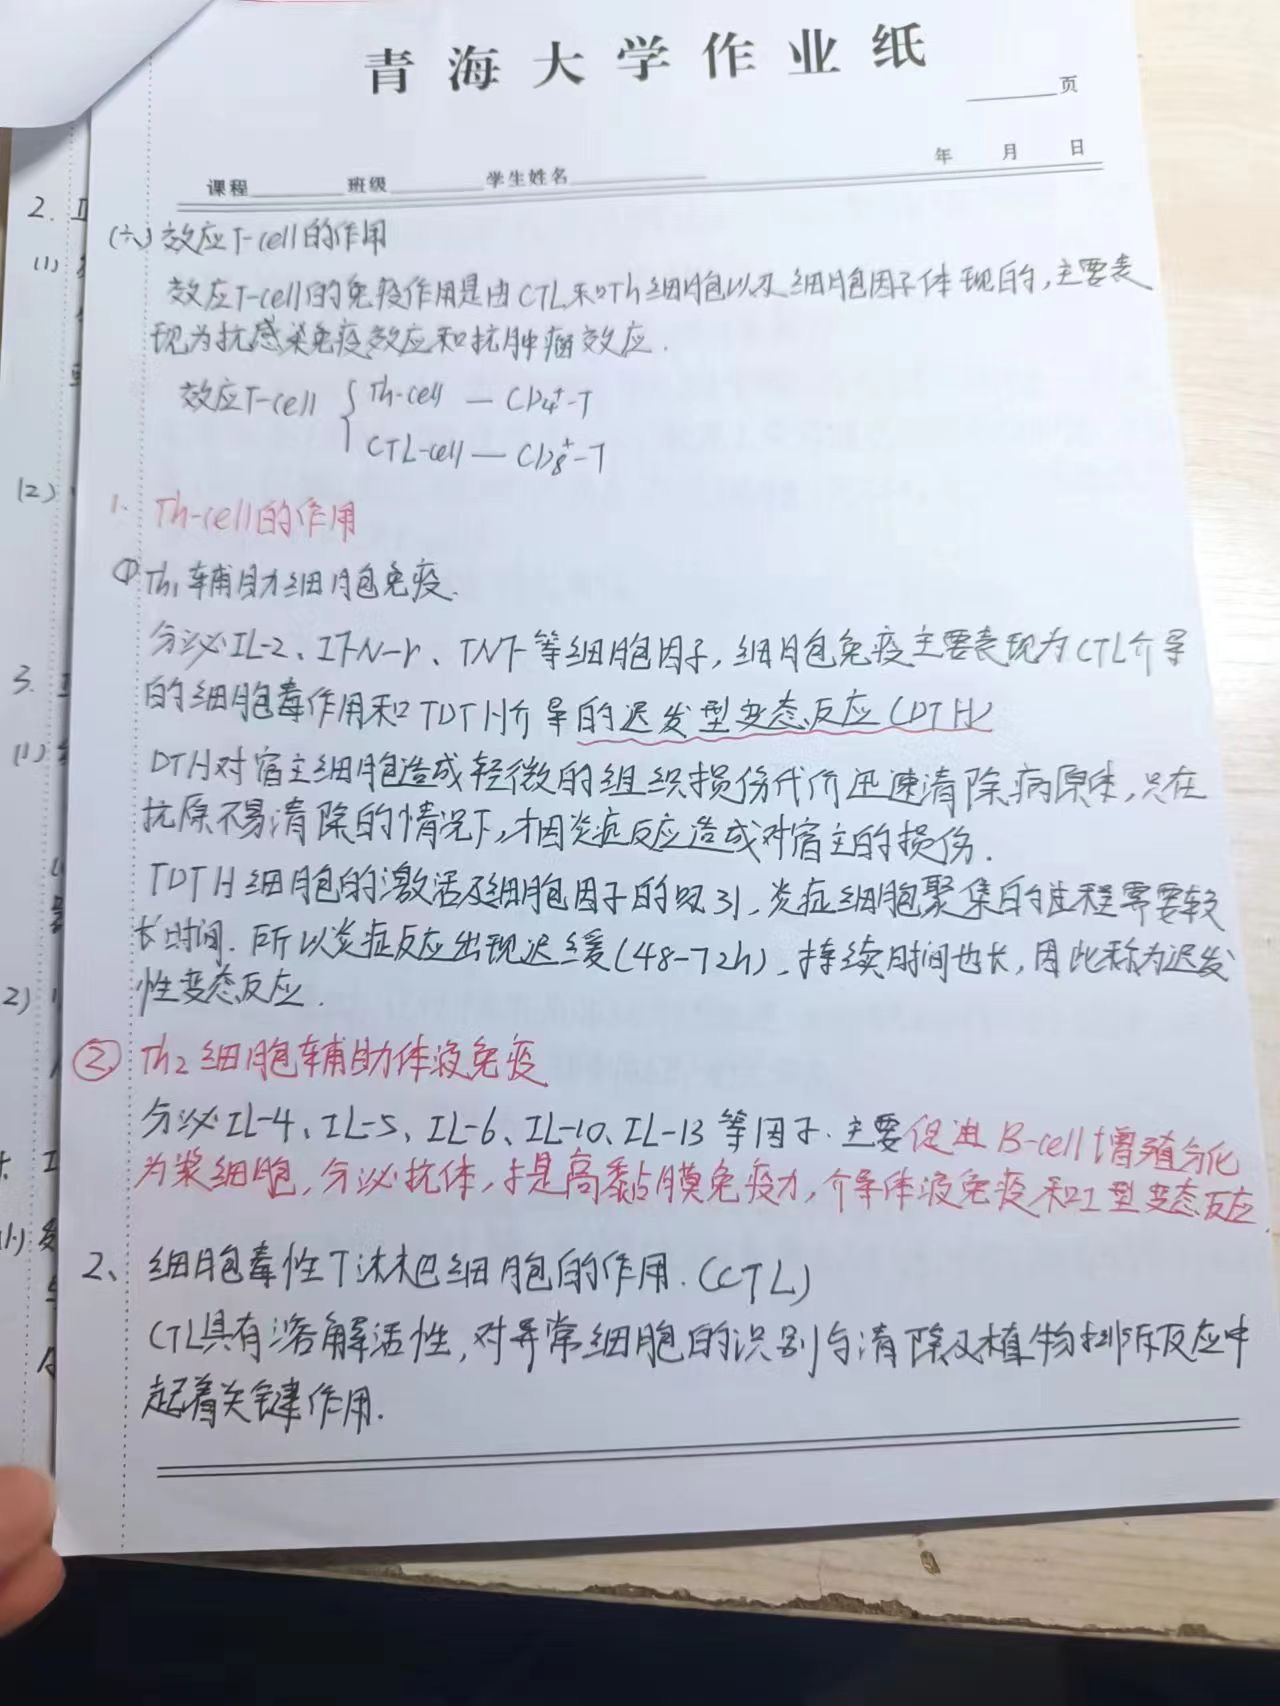 青海大学作业纸
页
年 月 日
课程 班级 学生姓名
(六) 效应T-cell的作用
效应T-cell的免疫作用是由CTL和Th细胞以及细胞因子体现的，主要表
现为抗感染免疫效应和抗肿瘤效应.
效应T-cell { Th-cell — CD4+-T
CTL-cell — CD8+-T
1. Th-cell的作用
① Th1辅助细胞免疫.
分泌IL-2、IFN-γ、TNF等细胞因子，细胞免疫主要表现为CTL介导
的细胞毒作用和TDTH介导的迟发型变态反应(DTH)
DTH对宿主细胞造成轻微的组织损伤代价迅速清除病原体，只在
抗原不易清除的情况下，才因炎症反应造成对宿主的损伤.
TDTH细胞的激活及细胞因子的吸引、炎症细胞聚集的过程需要较
长时间.所以炎症反应出现迟缓(48-72h)、持续时间也长，因此称为迟发
性变态反应.
② Th2细胞辅助体液免疫
分泌IL-4、IL-5、IL-6、IL-10、IL-13等因子.主要促进B-cell增殖分化
为浆细胞，分泌抗体，是高黏膜免疫力，介导体液免疫和I型变态反应.
2、细胞毒性T淋巴细胞的作用.(CTL)
CTL具有溶解活性，对异常细胞的识别与清除及植物排斥反应中
起着关键作用.
2.
(1)
(2)
3.
(1)
2)